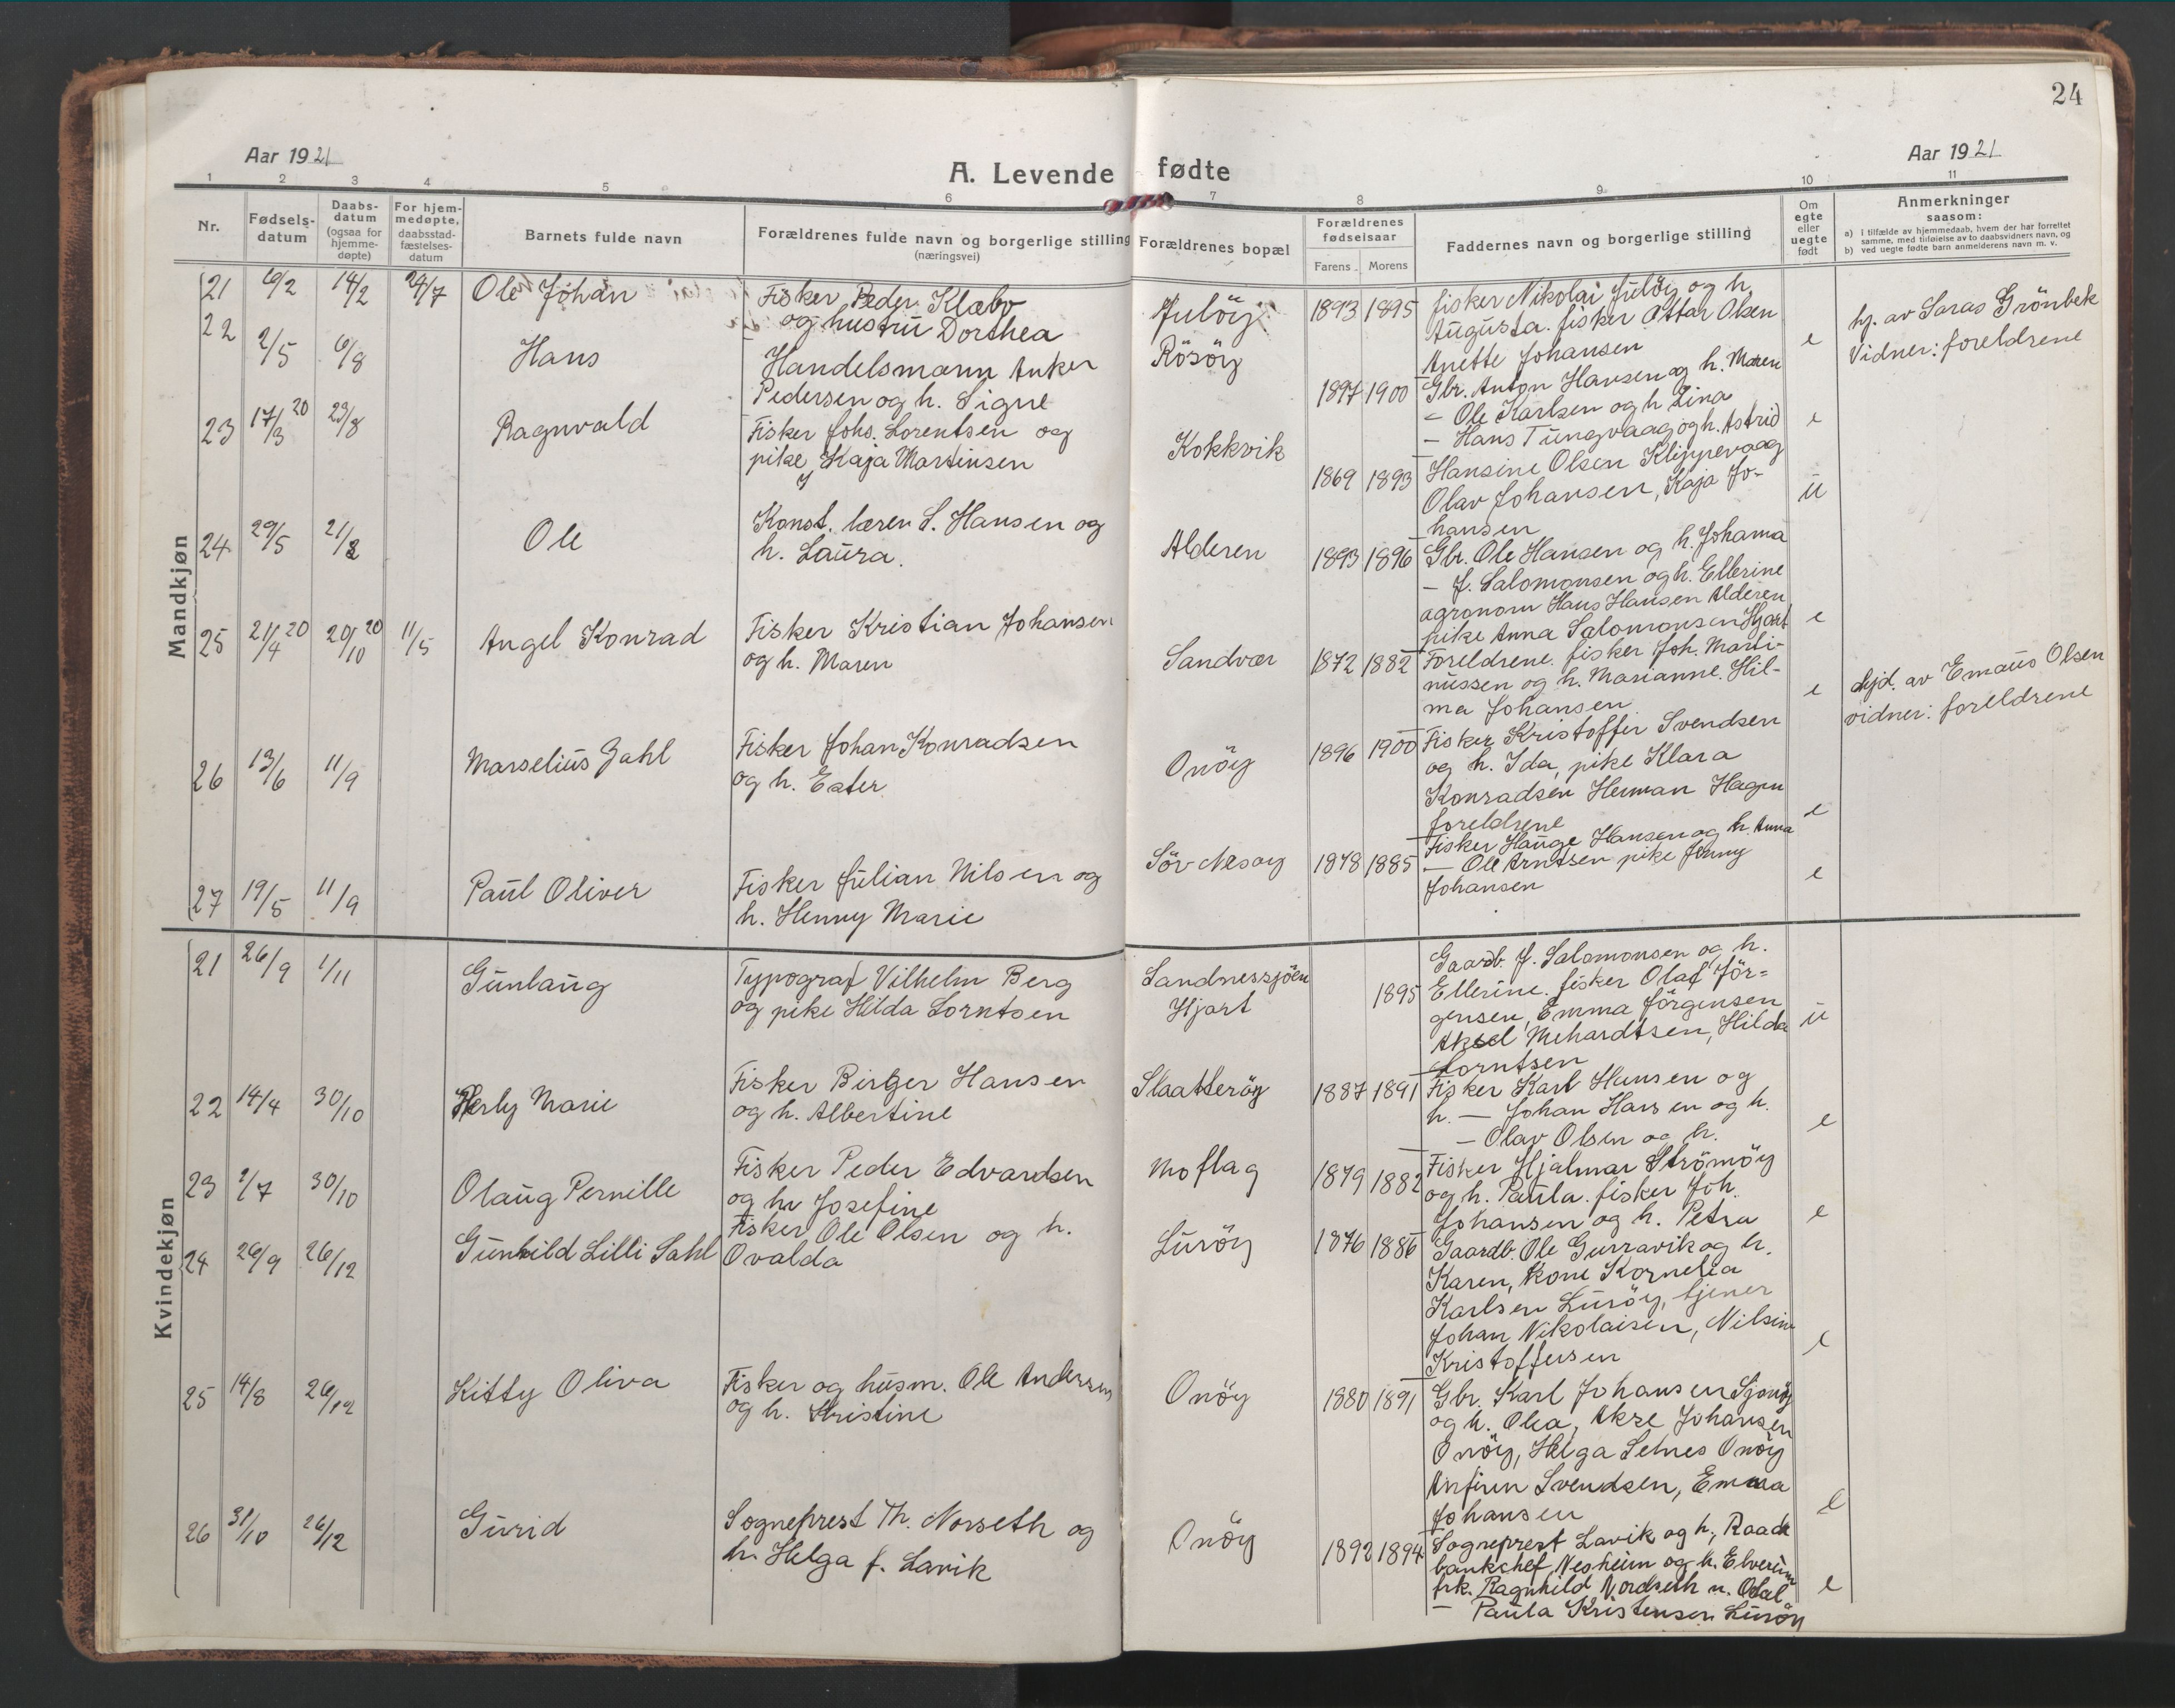 24
Aar 1921
A. Levende fødte
Aar 1921
1 2 3 4 5 6 7 8 9 10 11
Nr.
Fødsels-
datum
Daabs-
datum
(ogsaa for
hjemme-
døpte)
For hjem-
medøpte,
daabsstad-
fæstelses-
datum
Barnets fulde navn
Forældrenes fulde navn og borgerlige stilling
(næringsvei)
Forældrenes bopæl
Forældrenes
fødselsaar
Farens Morens
Faddernes navn og borgerlige stilling
Om
egte
eller
uegte
født
Anmerkninger
saasom:
a) i tilfælde av hjemmedaab, hvem der har forrettet
samme, med tilføielse av to daabsvidners navn, og
b) ved uegte fødte barn anmelderens navn m. v.
Mandkjøn
21 6/2 14/2 24/7 Ole Johan
Fisker Peder Klæbo
og hustru Dorthea
Julöy
1893 1895
fisker Nikolai Julöy og h.
Augusta. fisker Ottar Olsen
Anette Johansen
e
hj. av Saras Grönbek
Vidner: foreldrene
22 2/5 6/8 Hans
Handelsmann Anker
Pedersen og h. Signe
Rösöy
1897 1900
Gbr. Anton Hansen og h. Maren
– Ole Karlsen og h. Lina
– Hans Tungvaag og h. Astrid
e
23 17/3 20 23/8 Ragnvald
Fisker Johs. Lorentsen og
pike Kaja Martinsen
Kokkvik
1869 1893
Hansine Olsen Klippevaag
Olav Johansen, Kaja Jo-
hansen
ü
24 29/5 21/8 Ole
Konst. lærer S. Hansen og
h. Laura.
Alderen
1893 1896
Gbr. Ole Hansen og h. Johanna
– J. Salomonsen og h. Ellerine
agronom Hans Hansen Alderen
pike Anna Salomonsen Hjart
e
25 21/4 20 20/10 20 11/5 Angel Konrad
Fisker Kristian Johansen
og h. Maren
Sandvær
1872 1882
Foreldrene. fisker Joh. Marti-
nussen og h. Marianne. Hil-
ma Johansen
e
hjd. av Emaus Olsen
vidner: foreldrene
26 13/6 11/9 Marselius Zahl
Fisker Johan Konradsen
og h. Ester
Onöy
1896 1900
Fisker Kristoffer Svendsen
og h. Ida, pike Klara
Konradsen Herman Hagen
foreldrene
e
27 19/5 11/9 Paul Oliver
Fisker Julian Nilsen og
h. Henny Marie
Sör Nesöy
1878 1885
Fisker Hauge Hansen og h. Anna
– Ole Arntsen pike Jenny
Johansen
e
Kvindekjøn
21 26/9 1/11 Gunlaug
Typograf Vilhelm Berg
og pike Hilda Lorntsen
Sandnessjöen
Hjart
1895
Gaardb. J. Salomonsen og h.
Ellerine. fisker Olaf Jör=
gensen, Emma Jörgensen
Aksel Mehardtsen, Hilda
Lorntsen
ü
22 14/4 30/10 Herly Marie
Fisker Birger Hansen
og h. Albertine
Slaatteröy
1887 1891
Fisker Karl Hansen og
h. – Johan Hansen og h.
– Olav Olsen og h.
e
23 2/7 30/10 Olaug Pernille
Fisker Peder Edvardsen
og h. Josefine
Moflag
1879 1882
Fisker Hjalmar Strömöy
og h. Paula. fisker Joh.
Johansen og h. Petra
e
24 26/9 26/12 Gunhild Lilli Dahl
Fisker Ole Olsen og h.
Ovalda
Luröy
1876 1886
Gaardb. Ole Gurravik og h.
Karen, kone Kornelia
Karlsen Luröy, tjener
Johan Nikolaisen, Nilsine
Kristoffersen
e
25 14/8 26/12 Kitty Oliva
Fisker og husm. Ole Andersen
og h. Kristine
Onöy
1880 1891
Gbr. Karl Johansen Sjonöy
og h. Olea, Akse Johansen
Onöy, Helga Selnes Onöy
Anfinn Svendsen, Emma
Johansen
e
26 31/10 26/12 Gurid
Sogneprest Th. Norseth og
h. Helga f. Lavik
Onöy
1892 1894
Sogneprest Lavik og h., Raade
bankchef Nesheim og h. Elverum
frk. Ragnhild Nordseth n. Odal
– Paula Kristensen Luröy
e